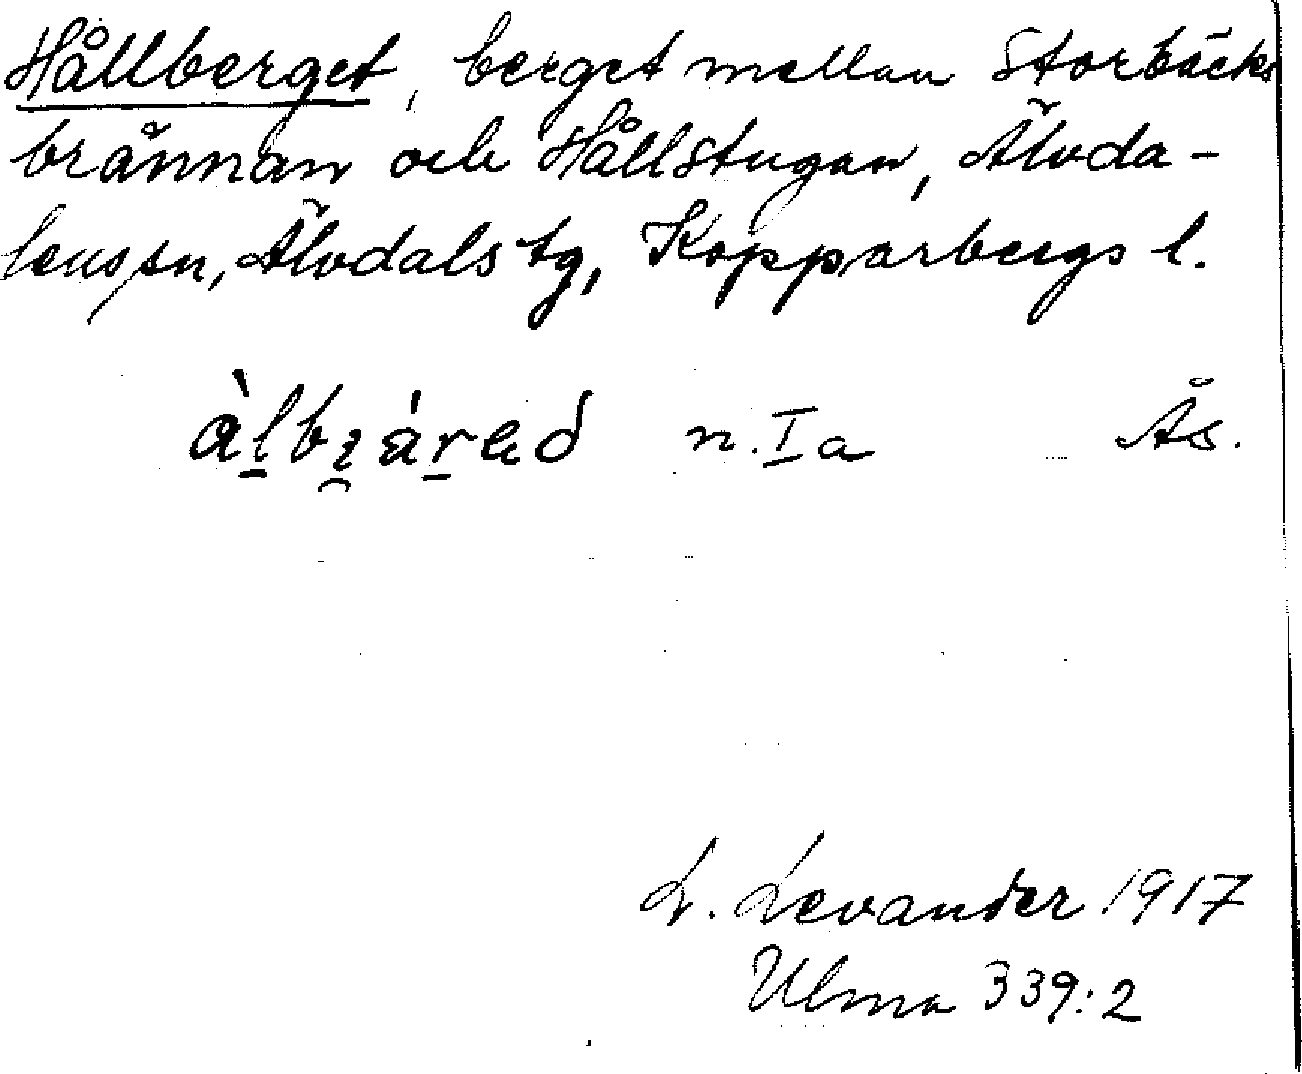 Hållberget, berget mellan Storbäcks
brännan och Hållstugan, Älvda-
lens sn, Älvdals tg, Kopparbergs l.
n. Ia Ås.
L. Levander 1917
Ulma 339:2